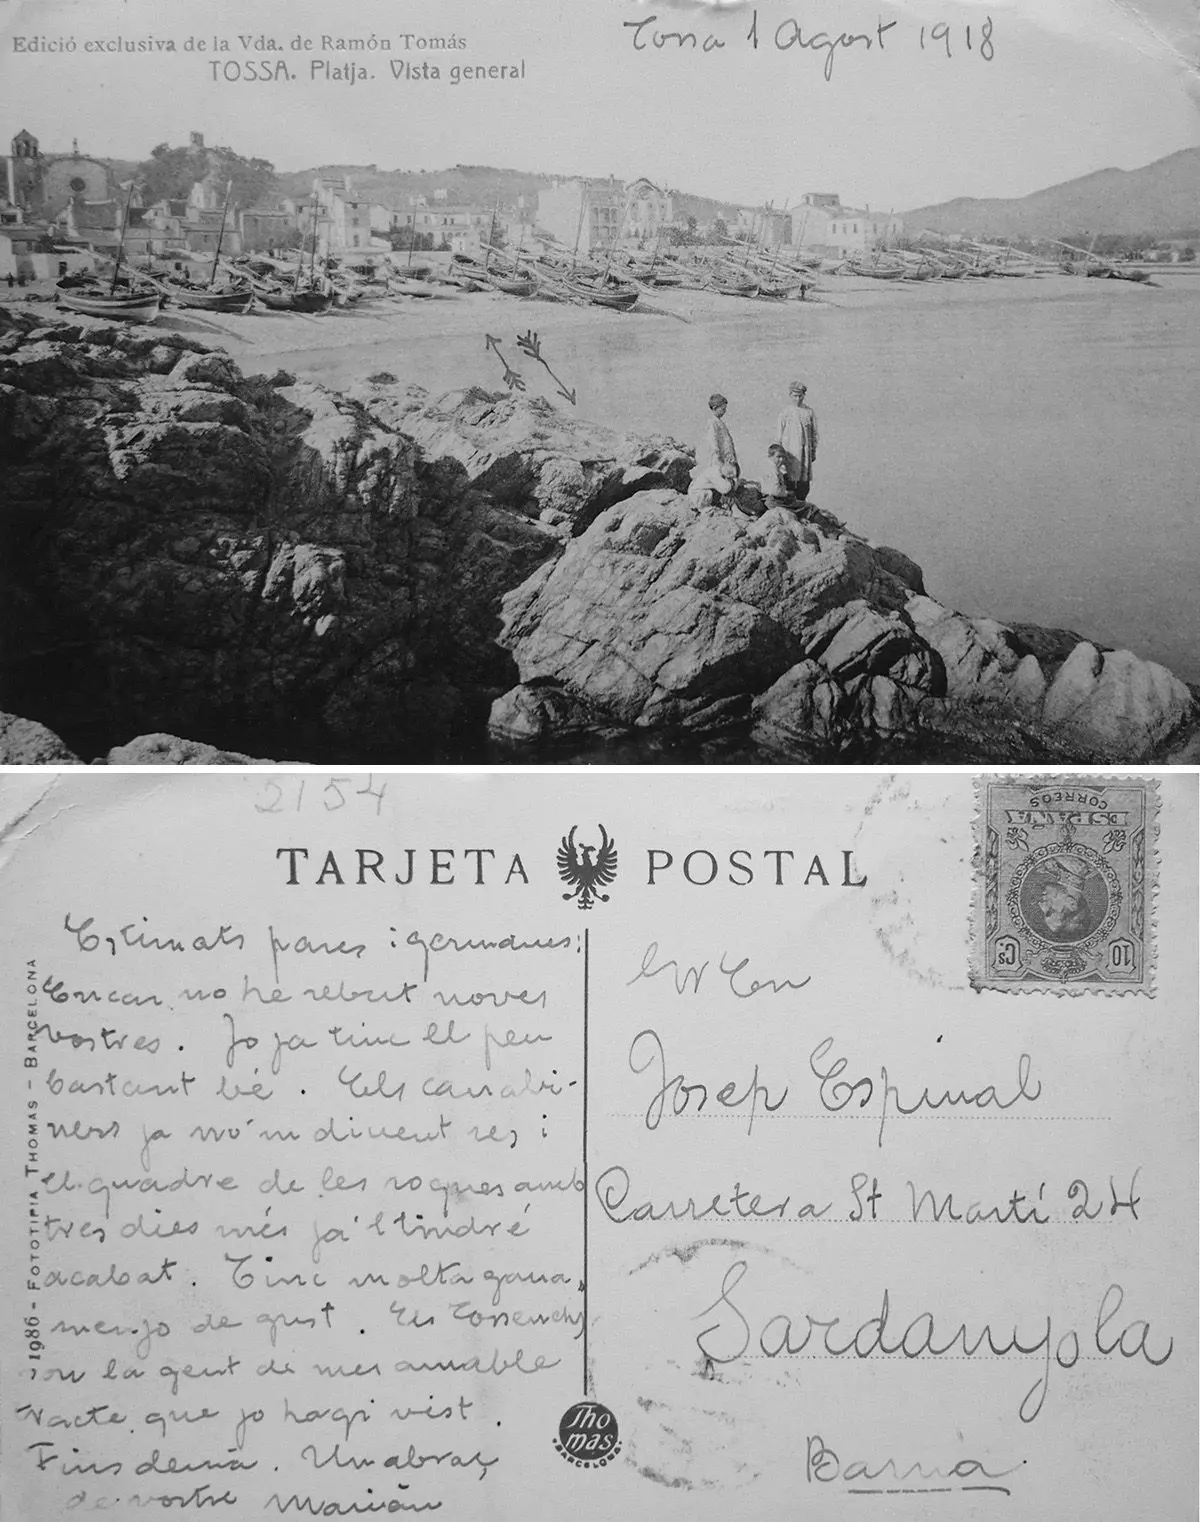 Edició exclusiva de la Vda. de Ramón Tomás
TOSSA. Platja. Vista general
Tossa 1 Agost 1918
2154
TARJETA POSTAL
ESPAÑA
CORREOS
10 Cs
10
Estimats pares i germanes:
Encar no he rebut noves
vostres. Jo ja tinc el peu
bastant bé. Els carrabi-
ners ja no'm diuent res i
el quadre de les roques amb
tres dies més ja'l tindré
acabat. Tinc molta gana,
menjo de gust. Els Tossenchs
son la gent de mes amable
tracte que jo hagi vist.
Fins demà. Un abraç
de vostre Marián
Josep Espinal
Carretera St Martí 24
Sardanyola
Barna
1986 - FOTOTIPIA THOMAS - BARCELONA
Thomas
BARCELONA